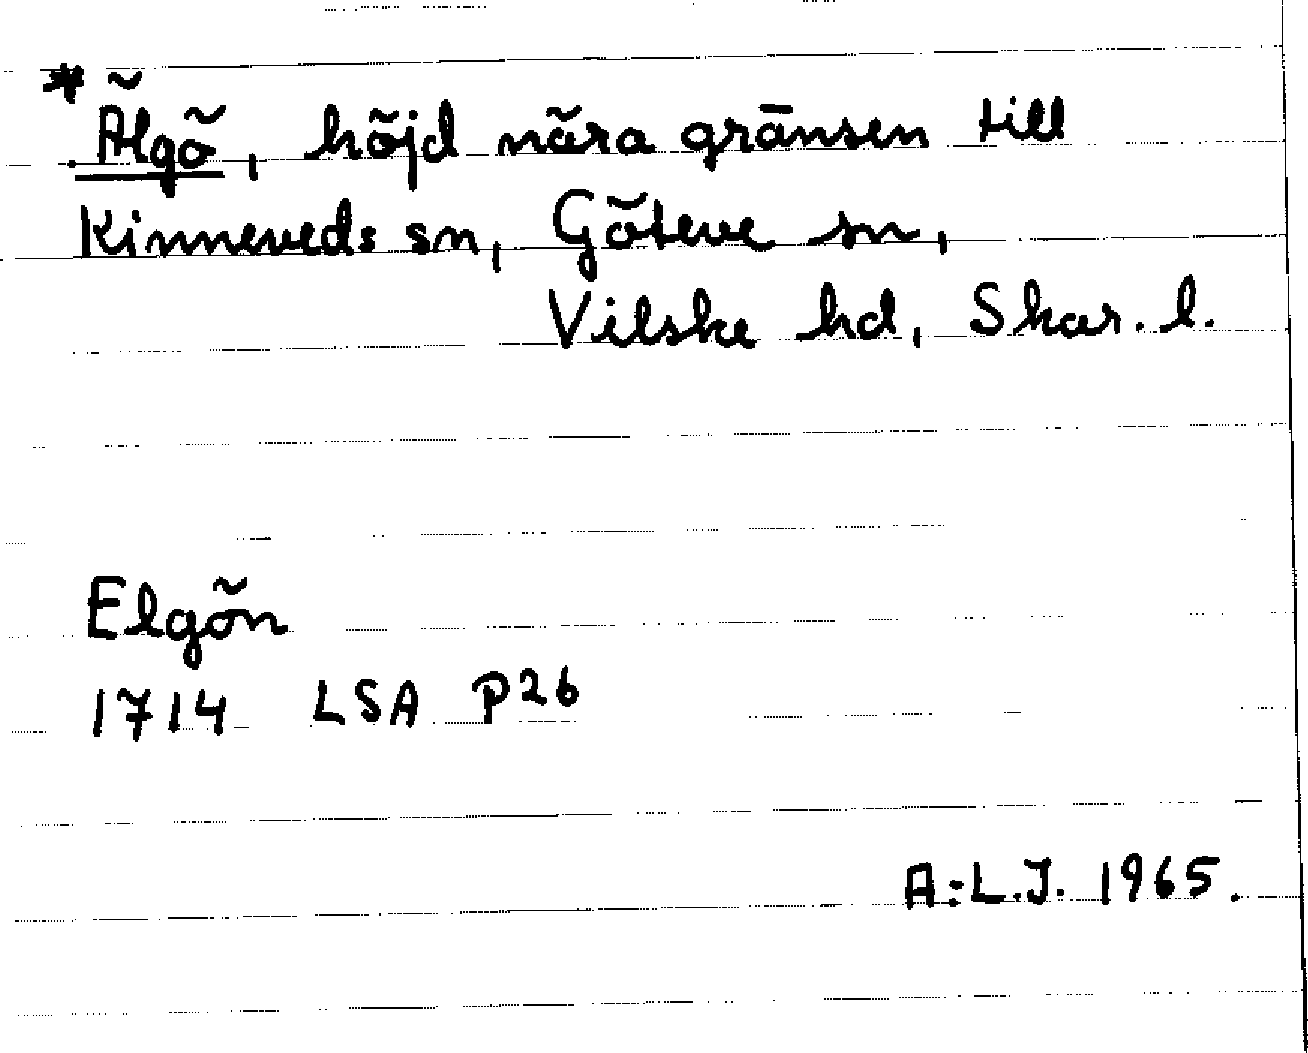 *Älgö, höjd nära gränsen till
Kinneveds sn, Göteve sn,
Vilske hd, Skar. l.
Elgön
1714 LSA P26
A:L.J. 1965.